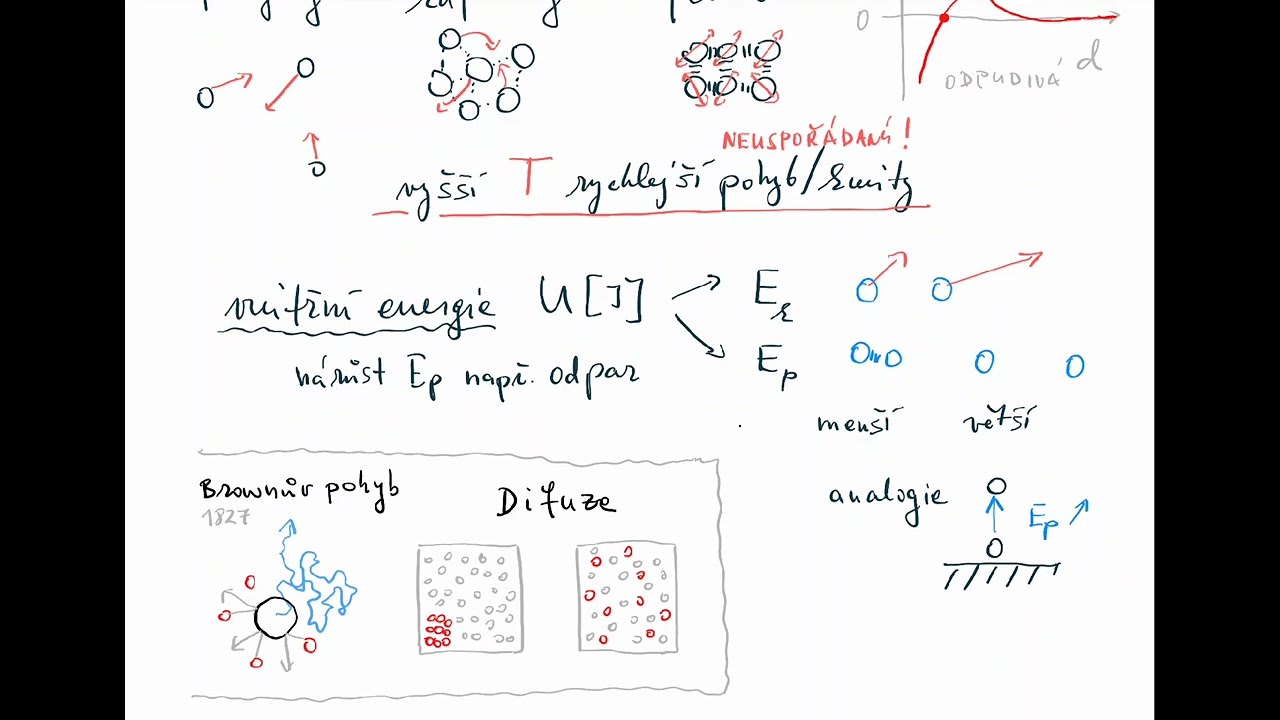 0
d
ODPUDIVÁ
NEUSPOŘÁDANÝ!
vyšší T rychlejší pohyb/kmity
vnitřní energie U[J] Ek
nárůst Ep např. odpar Ep
menší větší
Brownův pohyb
1827
Difuze
analogie
Ep